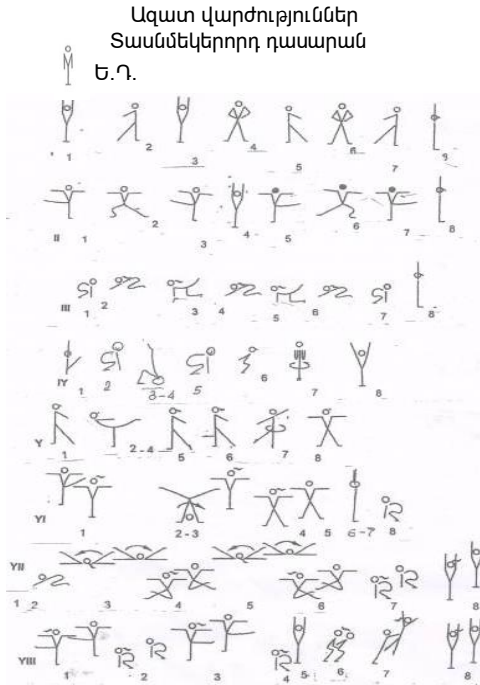 Ազատ վարժություններ
Տասնմեկերորդ դասարան
Ե.Դ.
1 2 3 4 5 6 7 9
II 1 2 3 4 5 6 7 8
III 1 2 3 4 5 6 7 8
IY 1 2 3-4 5 6 7 8
Y 1 2-4 5 6 7 8
YI 1 2-3 4 5 6-7 8
YII
1 2 3 4 5 6 7 8
YIII 1 2 3 4 5 6 7 8